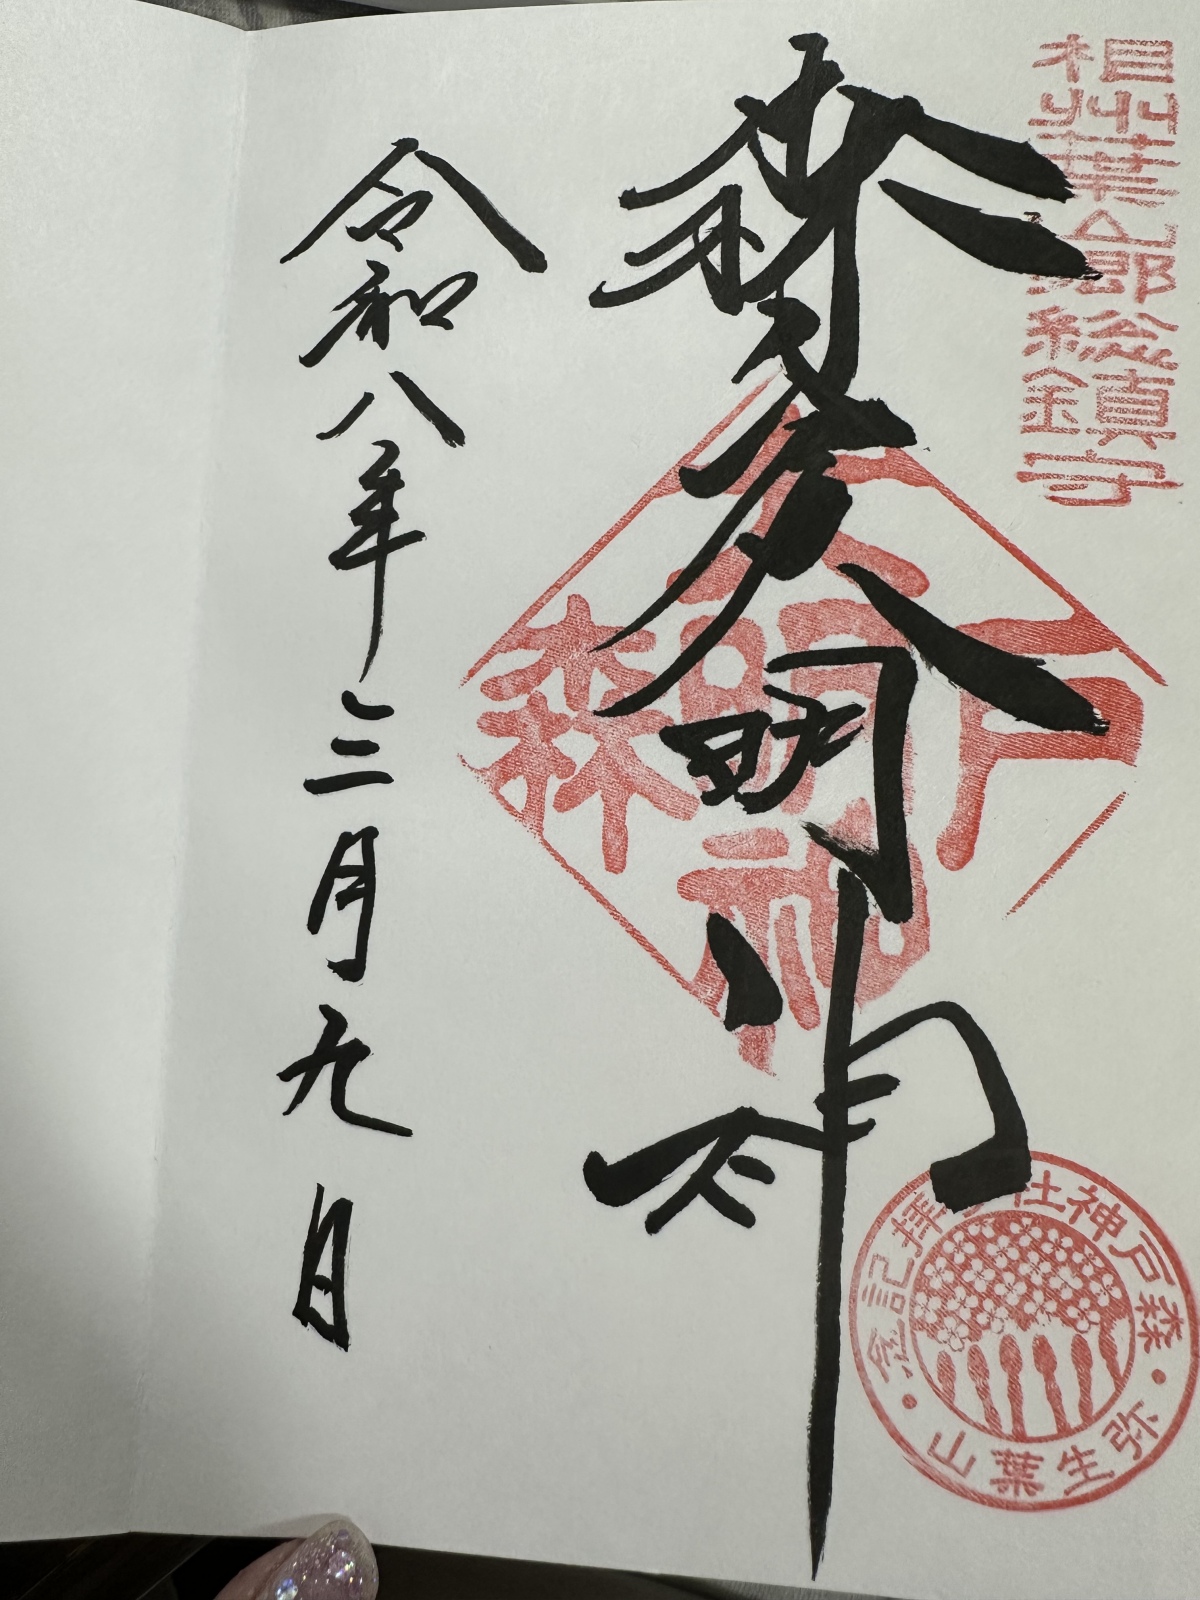 相州葉山郷総鎮守
森戸大明神
森戸大明神
森戸神社参拝記念
弥生葉山
令和八年三月九日